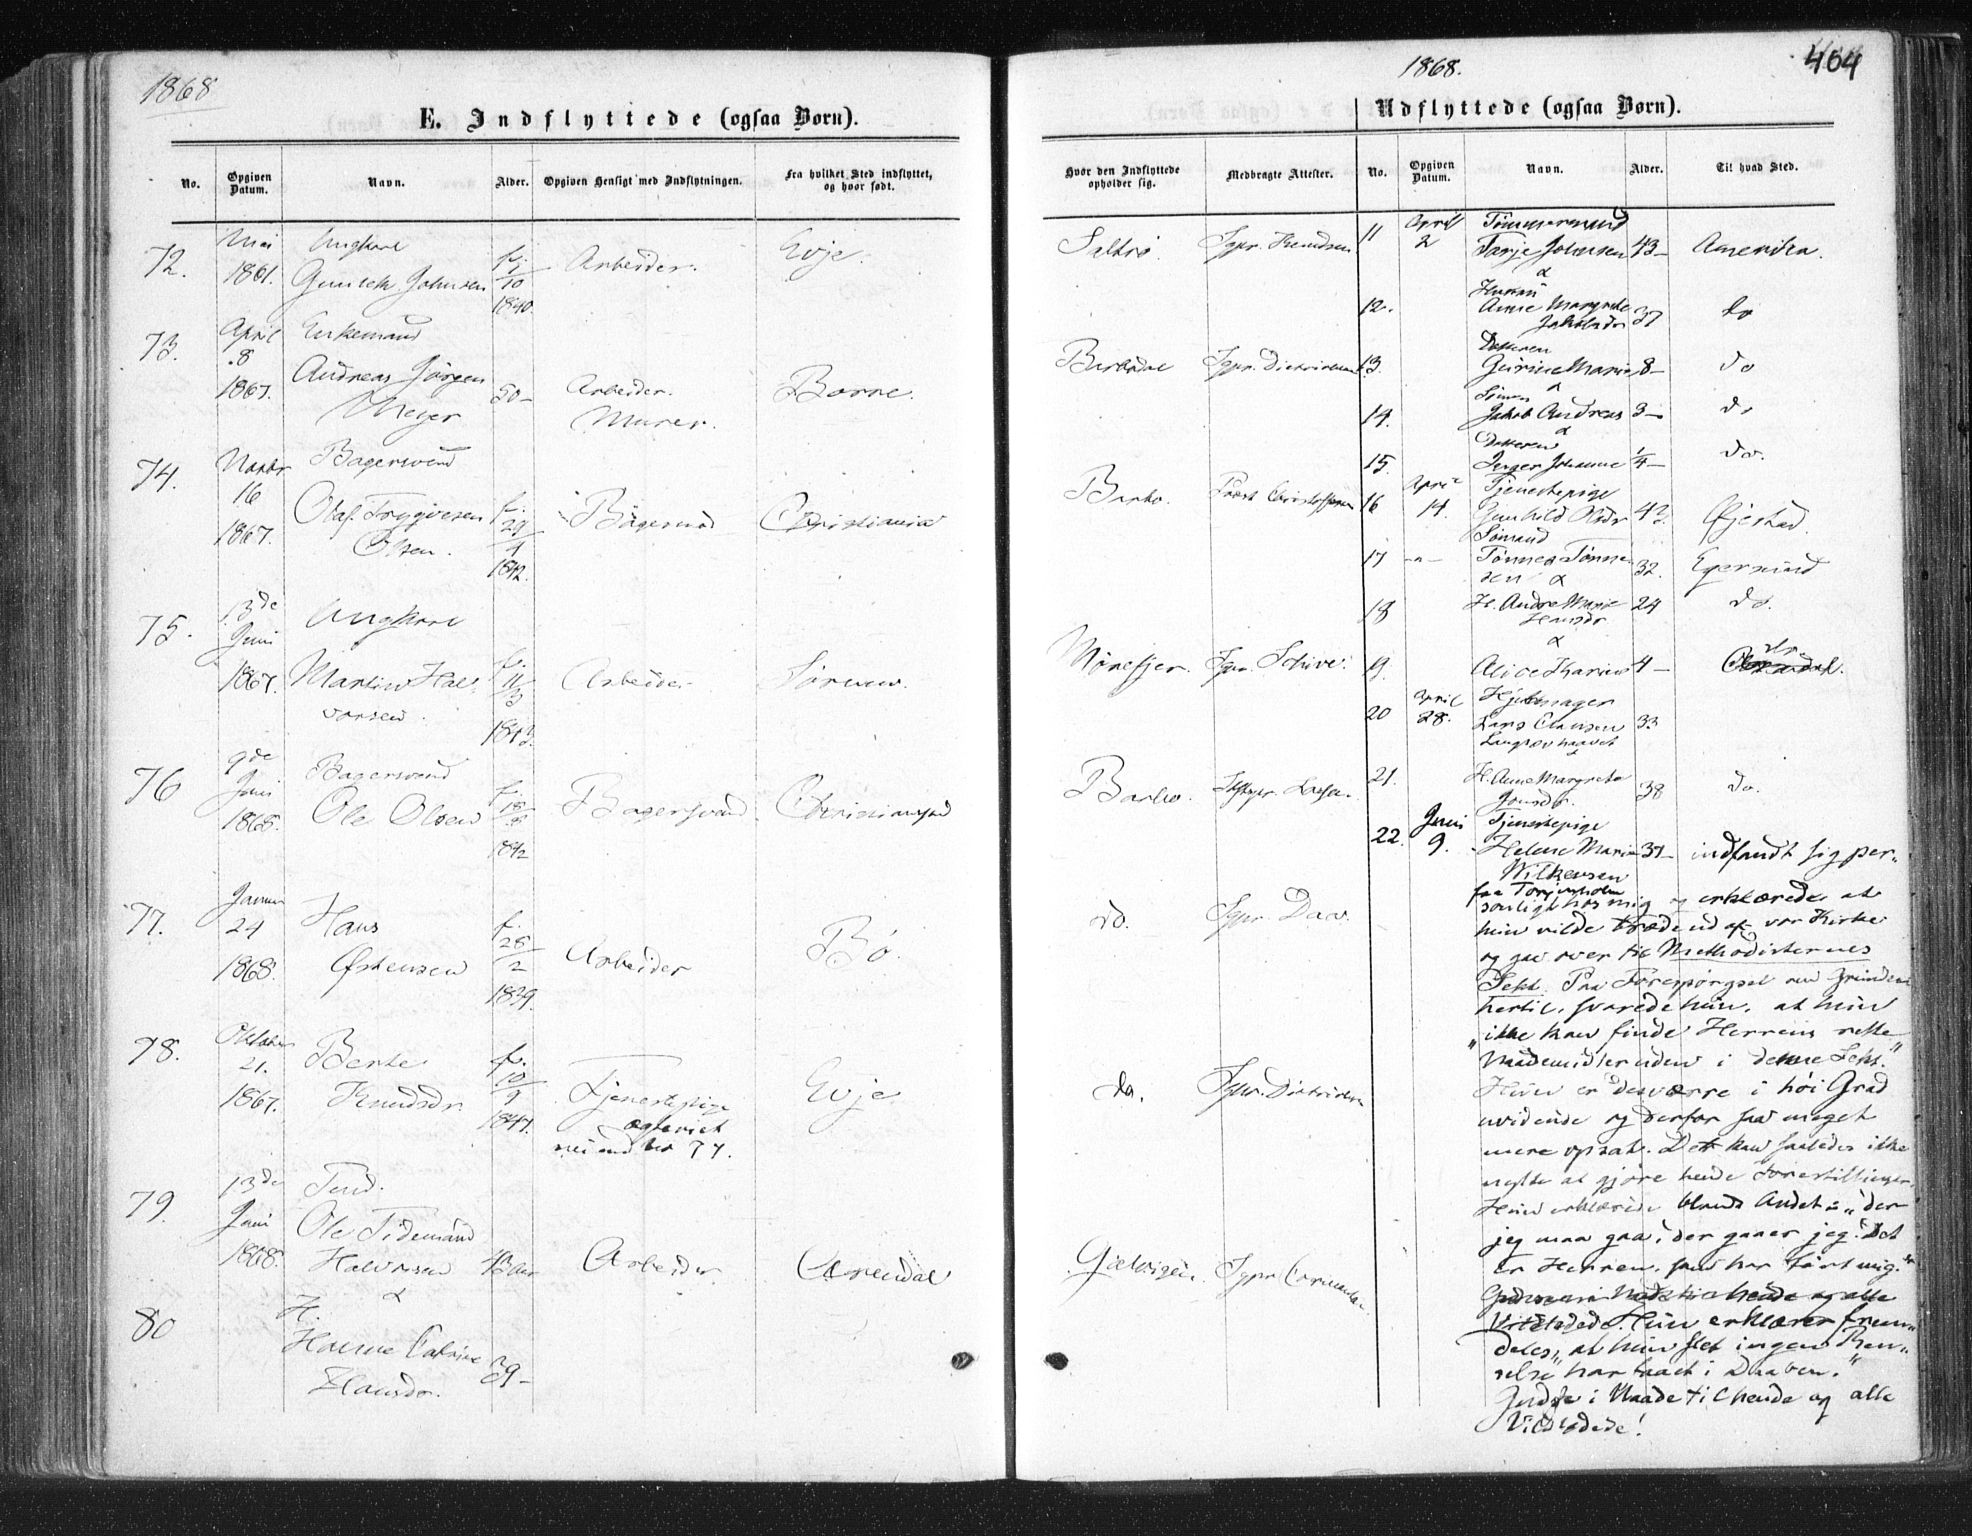 1868
E. Indflyttede (ogsaa Børn).
No. Opgiven Datum. Navn. Alder. Opgiven Hensigt med Indflytningen. Fra hvilket Sted indflyttet, og hvor født.
72. Mai Ungkarl
1861. Gunleik Johnsen f. 5/10 1840. Arbeider. Evje.
73. April Enkemand
8
1867. Andreas Jørgen 50- Arbeider. Borre.
Meyer Murer.
74. Novbr Bagersvend
16
1867. Olaf Trygvesen f. 29/4 Christiania
Olsen. 1842.
75. 13de Ungkarl
Juni
1867. Martin Hal- f. 11/3 Arbeider
vorsen. 1843.
76 9de Bagersvend
Juni
1868. Ole Olsen f. 18/8 Bagersvend Christiansand
1842
77. Januar Hans f.
24 28/2 Bø.
1868. Østensen 1839. Arbeider
78. Oktober Berte f.
21. 10/9
1867. Knudsdr 1847. Tjenestepige Evje
ægteviet
No 77.
79. 13de
Juni Ole Tidemand
1868. Halvorsen 43 Aar Arbeider Arendal
&
80 H.
Hanne Catrine 39-
Hansdr.
1868. 404
Udflyttede (ogsaa Børn).
Hvor den Indflyttede opholder sig. Medbragte Attester. No. Opgiven Datum. Navn. Alder. Til hvad Sted.
Saltrø. Sgpr. Knudsen 11 April 2 Tømmermand
Tarje Johnsen 43- Amerika.
&
Hustru
12. Anne Margrethe
Jakobsdr 37 do
Datteren
Barbodal Sgpr. Dietrichson 13. Gurine Marie 8- do
&
Sønnen
14. Jakob Andreas 3- do
&
Datteren
15. Inger Johanne 1/4- do.
April Tjenestepige
Barbo. Præst Christophersen 16 14. Gunhild Olsdr 42. Øjestad.
Sømand
17 -"- Tønnes Tønne-
sen & 32. Egersund
18 H. Andrea Marie 24 do.
Hansdr
&
Sgpr. Schive. 19. Alice Karine 4- do.
April
20 28. Lars Clausen 33
21. H. Anne Margrete
Barbo. 38 do.
22. Juni 9. Tjenestepige
Helene Marie 37- indfandt sig per-
Wilkensen
fra Torjusholm
do. Sgpr. Daae. sonligt hos mig og erklærede at
hun vilde træde ud af vor Kirke
og gaa over til Methodisternes
Sekt. Paa Forespørgsel om Grunden
hertil, svarede hun, at hun
"ikke kan finde Herrens rette
Naademidler uden i denne Sekt."
do. Sgpr. Dietrichson Hun er desværre i høi Grad
uvidende og derfor saa meget
mere opsat. Det kan saaledes ikke
nytte at gjøre hende Forestillinger.
Hun erklærede blandt Andet: "der
jeg maa gaa, der gaaer jeg. Det
er Herren, som har ført mig."
hende og alle
Vildledede. Hun erklærer frem-
deles, at hun slet ingen Ren-
selse har faaet i Daaben."
Gud se i Naade til hende og alle
Vildledede!